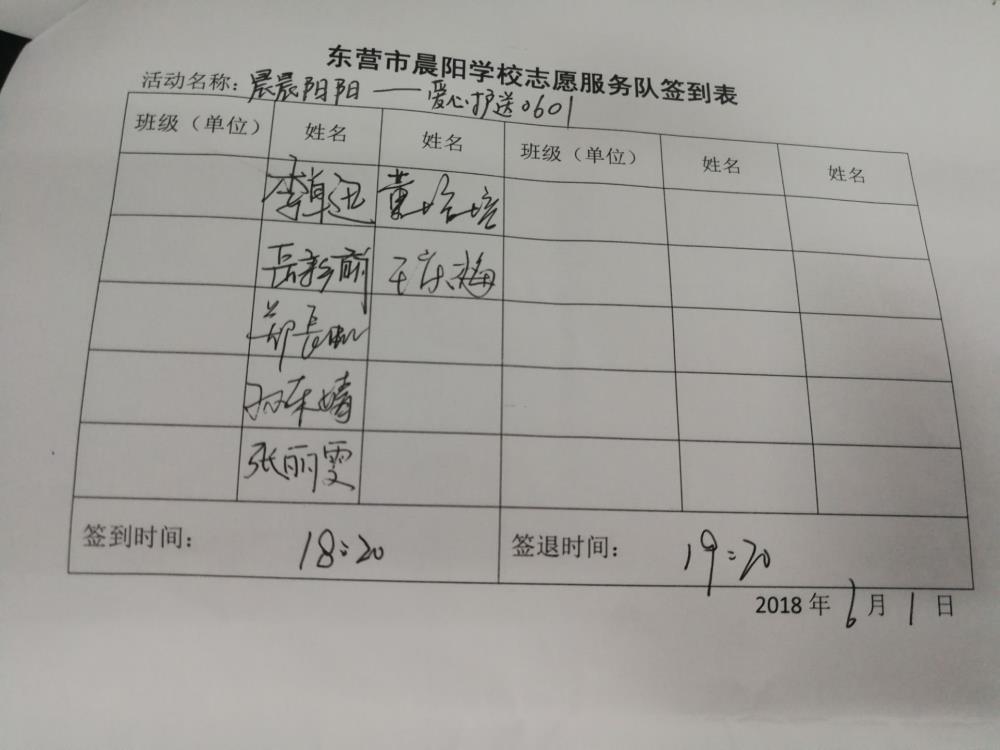 东营市晨阳学校志愿服务队签到表
活动名称：晨晨阳阳——爱心护送0601
班级（单位） 姓名 姓名 班级（单位） 姓名 姓名
李卓迅
岳新丽
郑长
张丽雯
签到时间： 18:20 签退时间： 19:20
2018 年 6 月 1 日